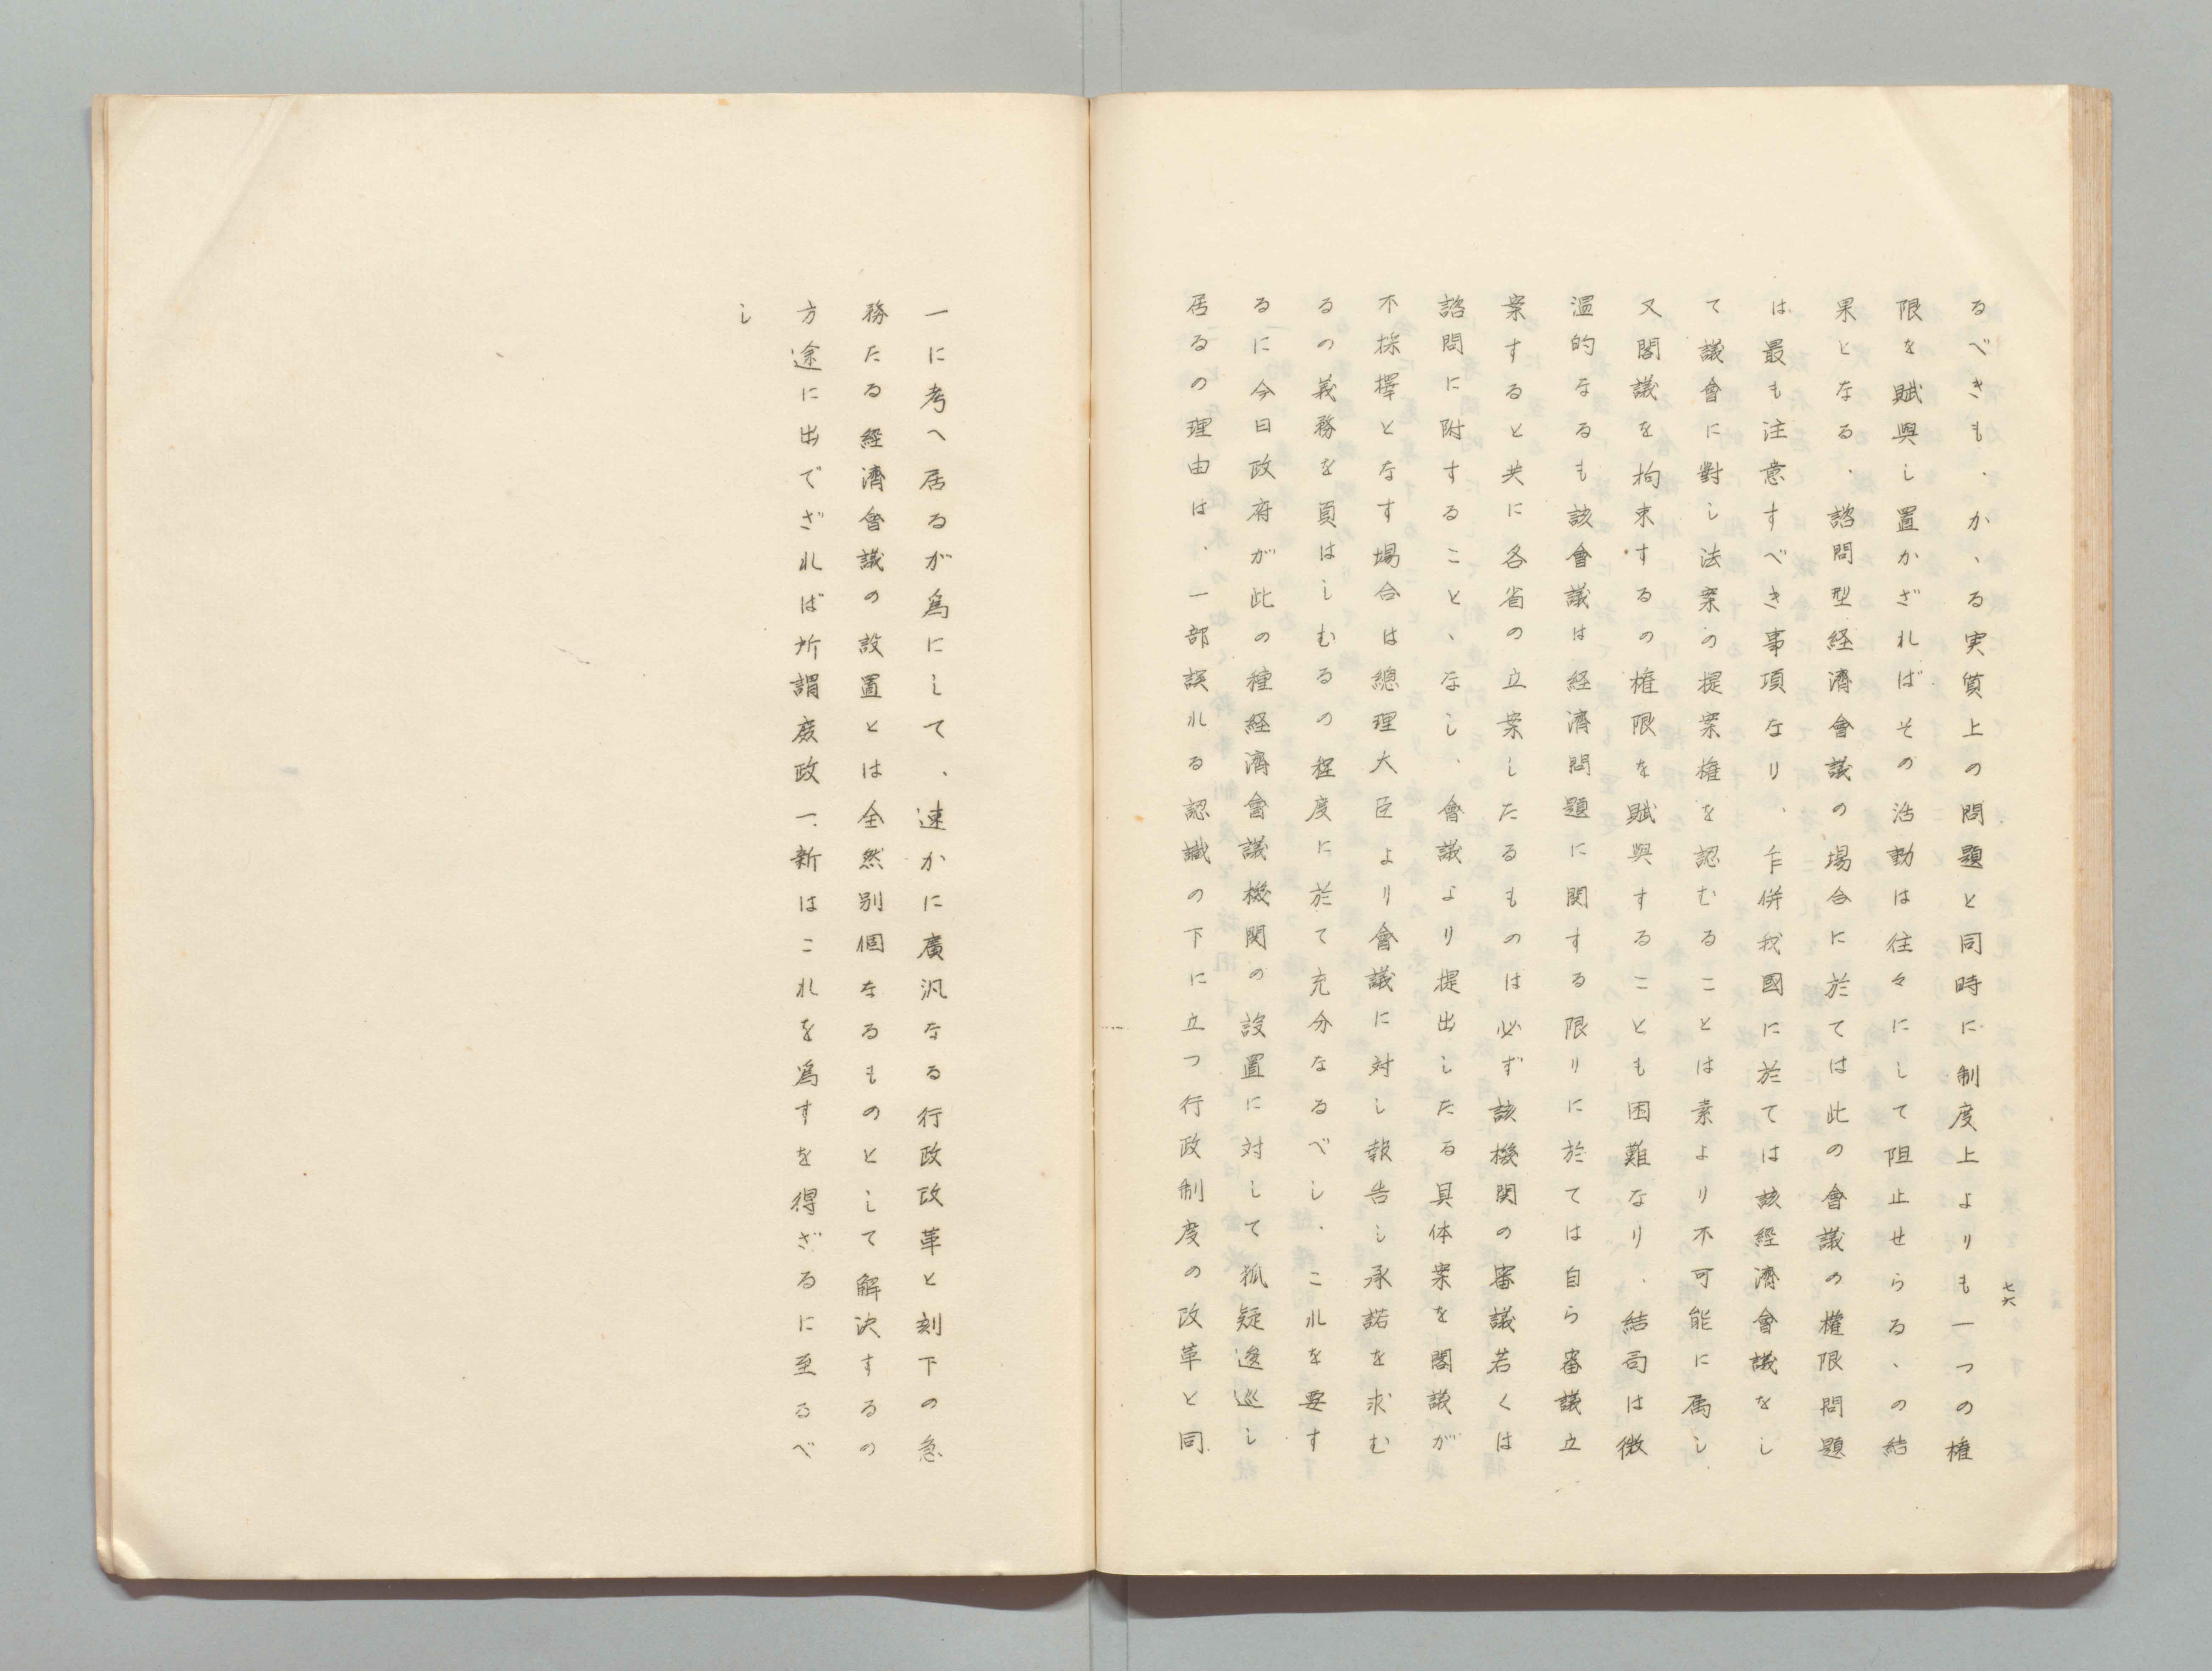 七六
るべきも、かゝる実質上の問題と同時に制度上よりも一つの権
限を賦與し置かざればその活動は往々にして阻止せらるゝの結
果となる、諮問型経済會議の場合に於ては此の會議の權限問題
は最も注意すべき事項なり、乍併我國に於ては該經濟會議をし
て議會に對し法案の提案権を認むることは素より不可能に属し
又閣議を拘束するの権限を賦與することも困難なり、結局は微
温的なるも該會議は経済問題に関する限りに於ては自ら審議立
案すると共に各省の立案したるものは必ず該機関の審議若くは
諮問に附すること、なし、會議より提出したる具体案を閣議が
不採擇となす場合は總理大臣より會議に対し報告し承諾を求む
るの義務を負はしむるの程度に於て充分なるべし、これを要す
るに今日政府が此の種経済會議機関の設置に対して狐疑逡巡し
居るの理由は、一部誤れる認識の下に立つ行政制度の改革と同
一に考へ居るが爲にして、速かに廣汎なる行政改革と刻下の急
務たる經濟會議の設置とは全然別個なるものとして解決するの
方途に出でざれば所謂庶政一新はこれを爲すを得ざるに至るべ
し